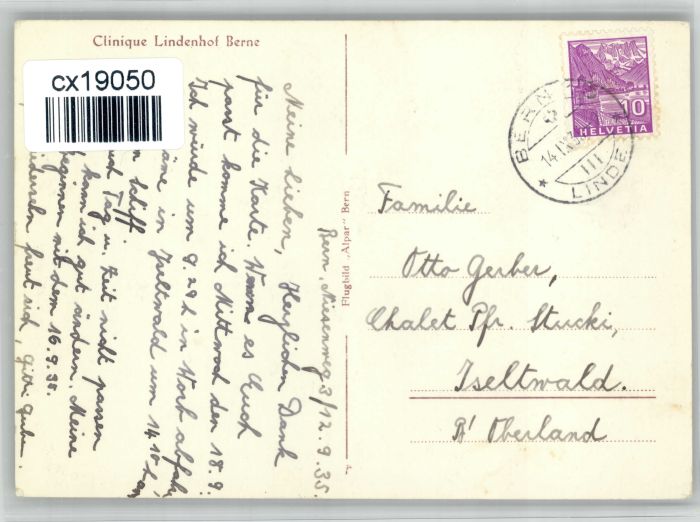 Clinique Lindenhof Berne
cx19050
Bern, 3/12.9.35.
Meine Lieben, Herzlichen Dank
für die Karte. Wenn es Euch
passt komme ich Mittwoch den 18.9.
Ich würde um 9.29 h in Worb abfah
in Iseltwald um 14.10
Schiff.
Tag u. Zeit nicht passen
kann ich gut ändern. Meine
beginnen mit dem 16.9.35.
freut sich,
Flugbild „Alpar" Bern
HELVETIA
10
BERN
LINDE
III
14.IX.35
Familie
Otto Gerber,
Chalet Pfr. Stucki,
Iseltwald.
B' Oberland